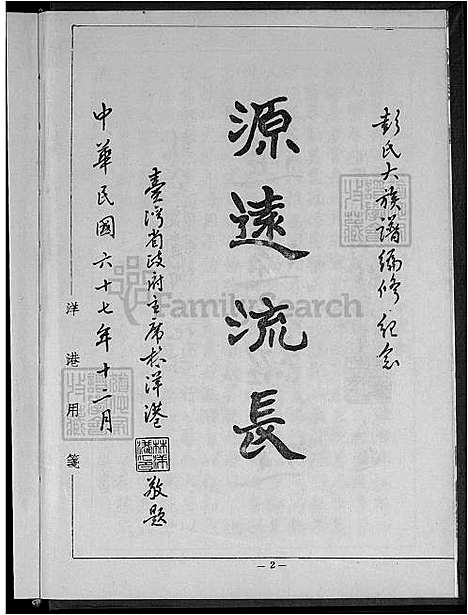 彭氏大族譜編修紀念
源遠流長
臺灣省政府主席林洋港
敬題
中華民國六十七年十二月
洋港用箋
林洋港印
FamilySearch
— 2 —